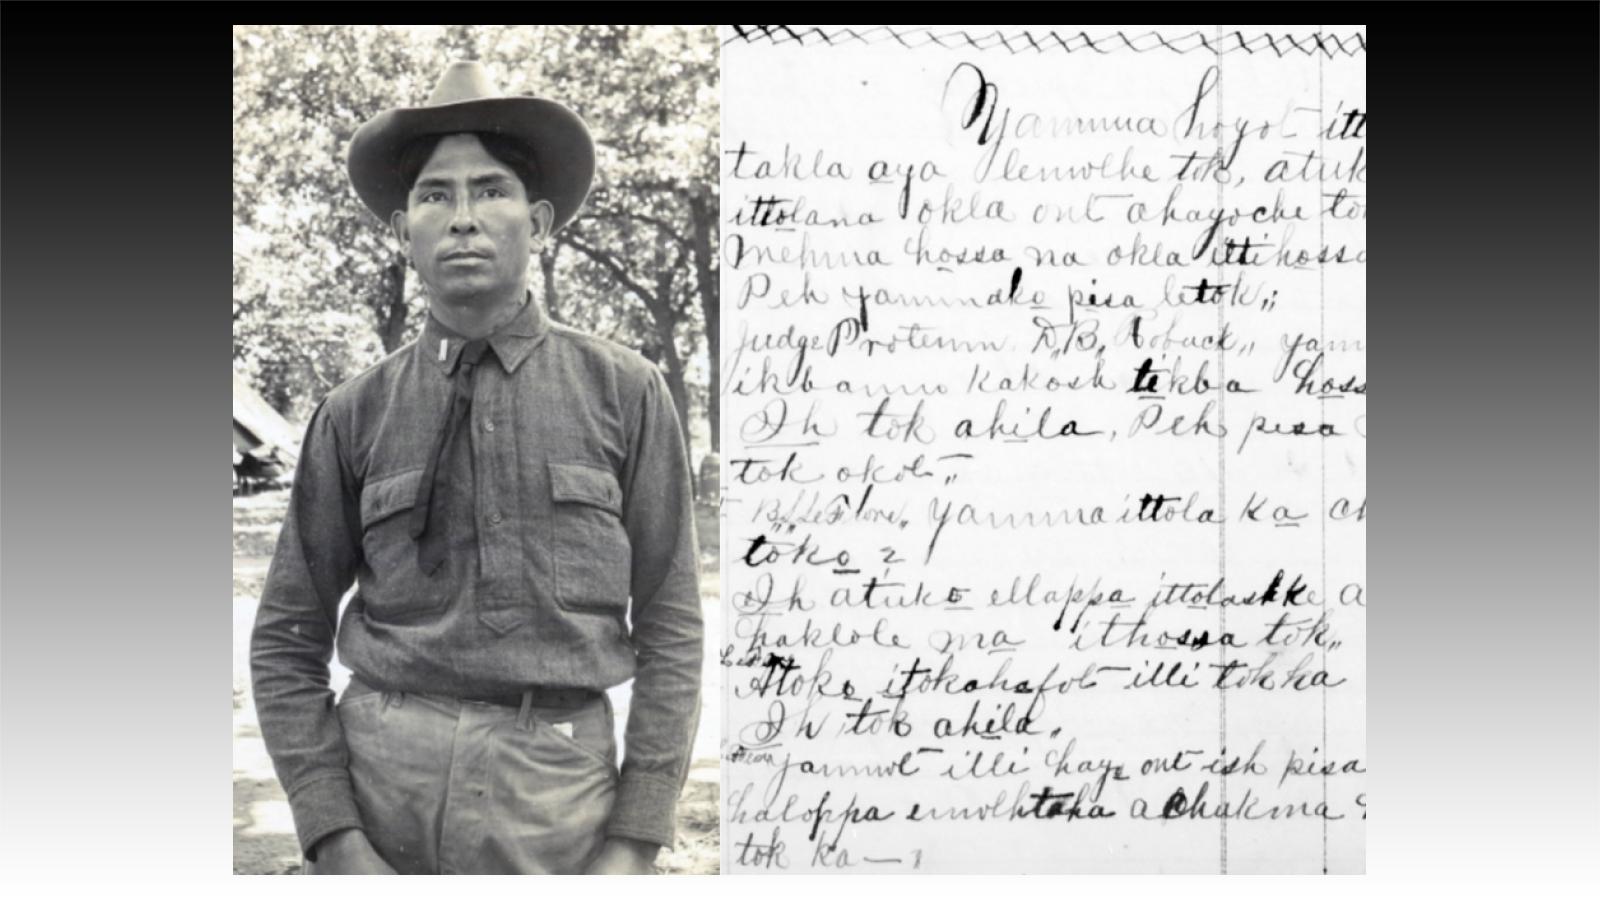 Yammua hoyot itt
takla aya lenwlhe tok, atuk
ittolana okla ont ahayoche tok
Mehma hossa na okla ittihossa
Peh yammako pisa letok,,
Judge Protemn D,,B,, Roback,, yam
ikbanno kakosh tikba hoss
Ih tok ahila, Peh pisa
tok okot,,
B,,LeFlore,, Yamma ittola ka ch
toko ?
Ih atuko ellappa ittolashke a
haklole ma ithossa tok,,
Atoko itokahafot illi tok ka
Ih tok ahila,
yammot illi hay ont ish pisa
haloppa emolhtaha achukma
tok ka —